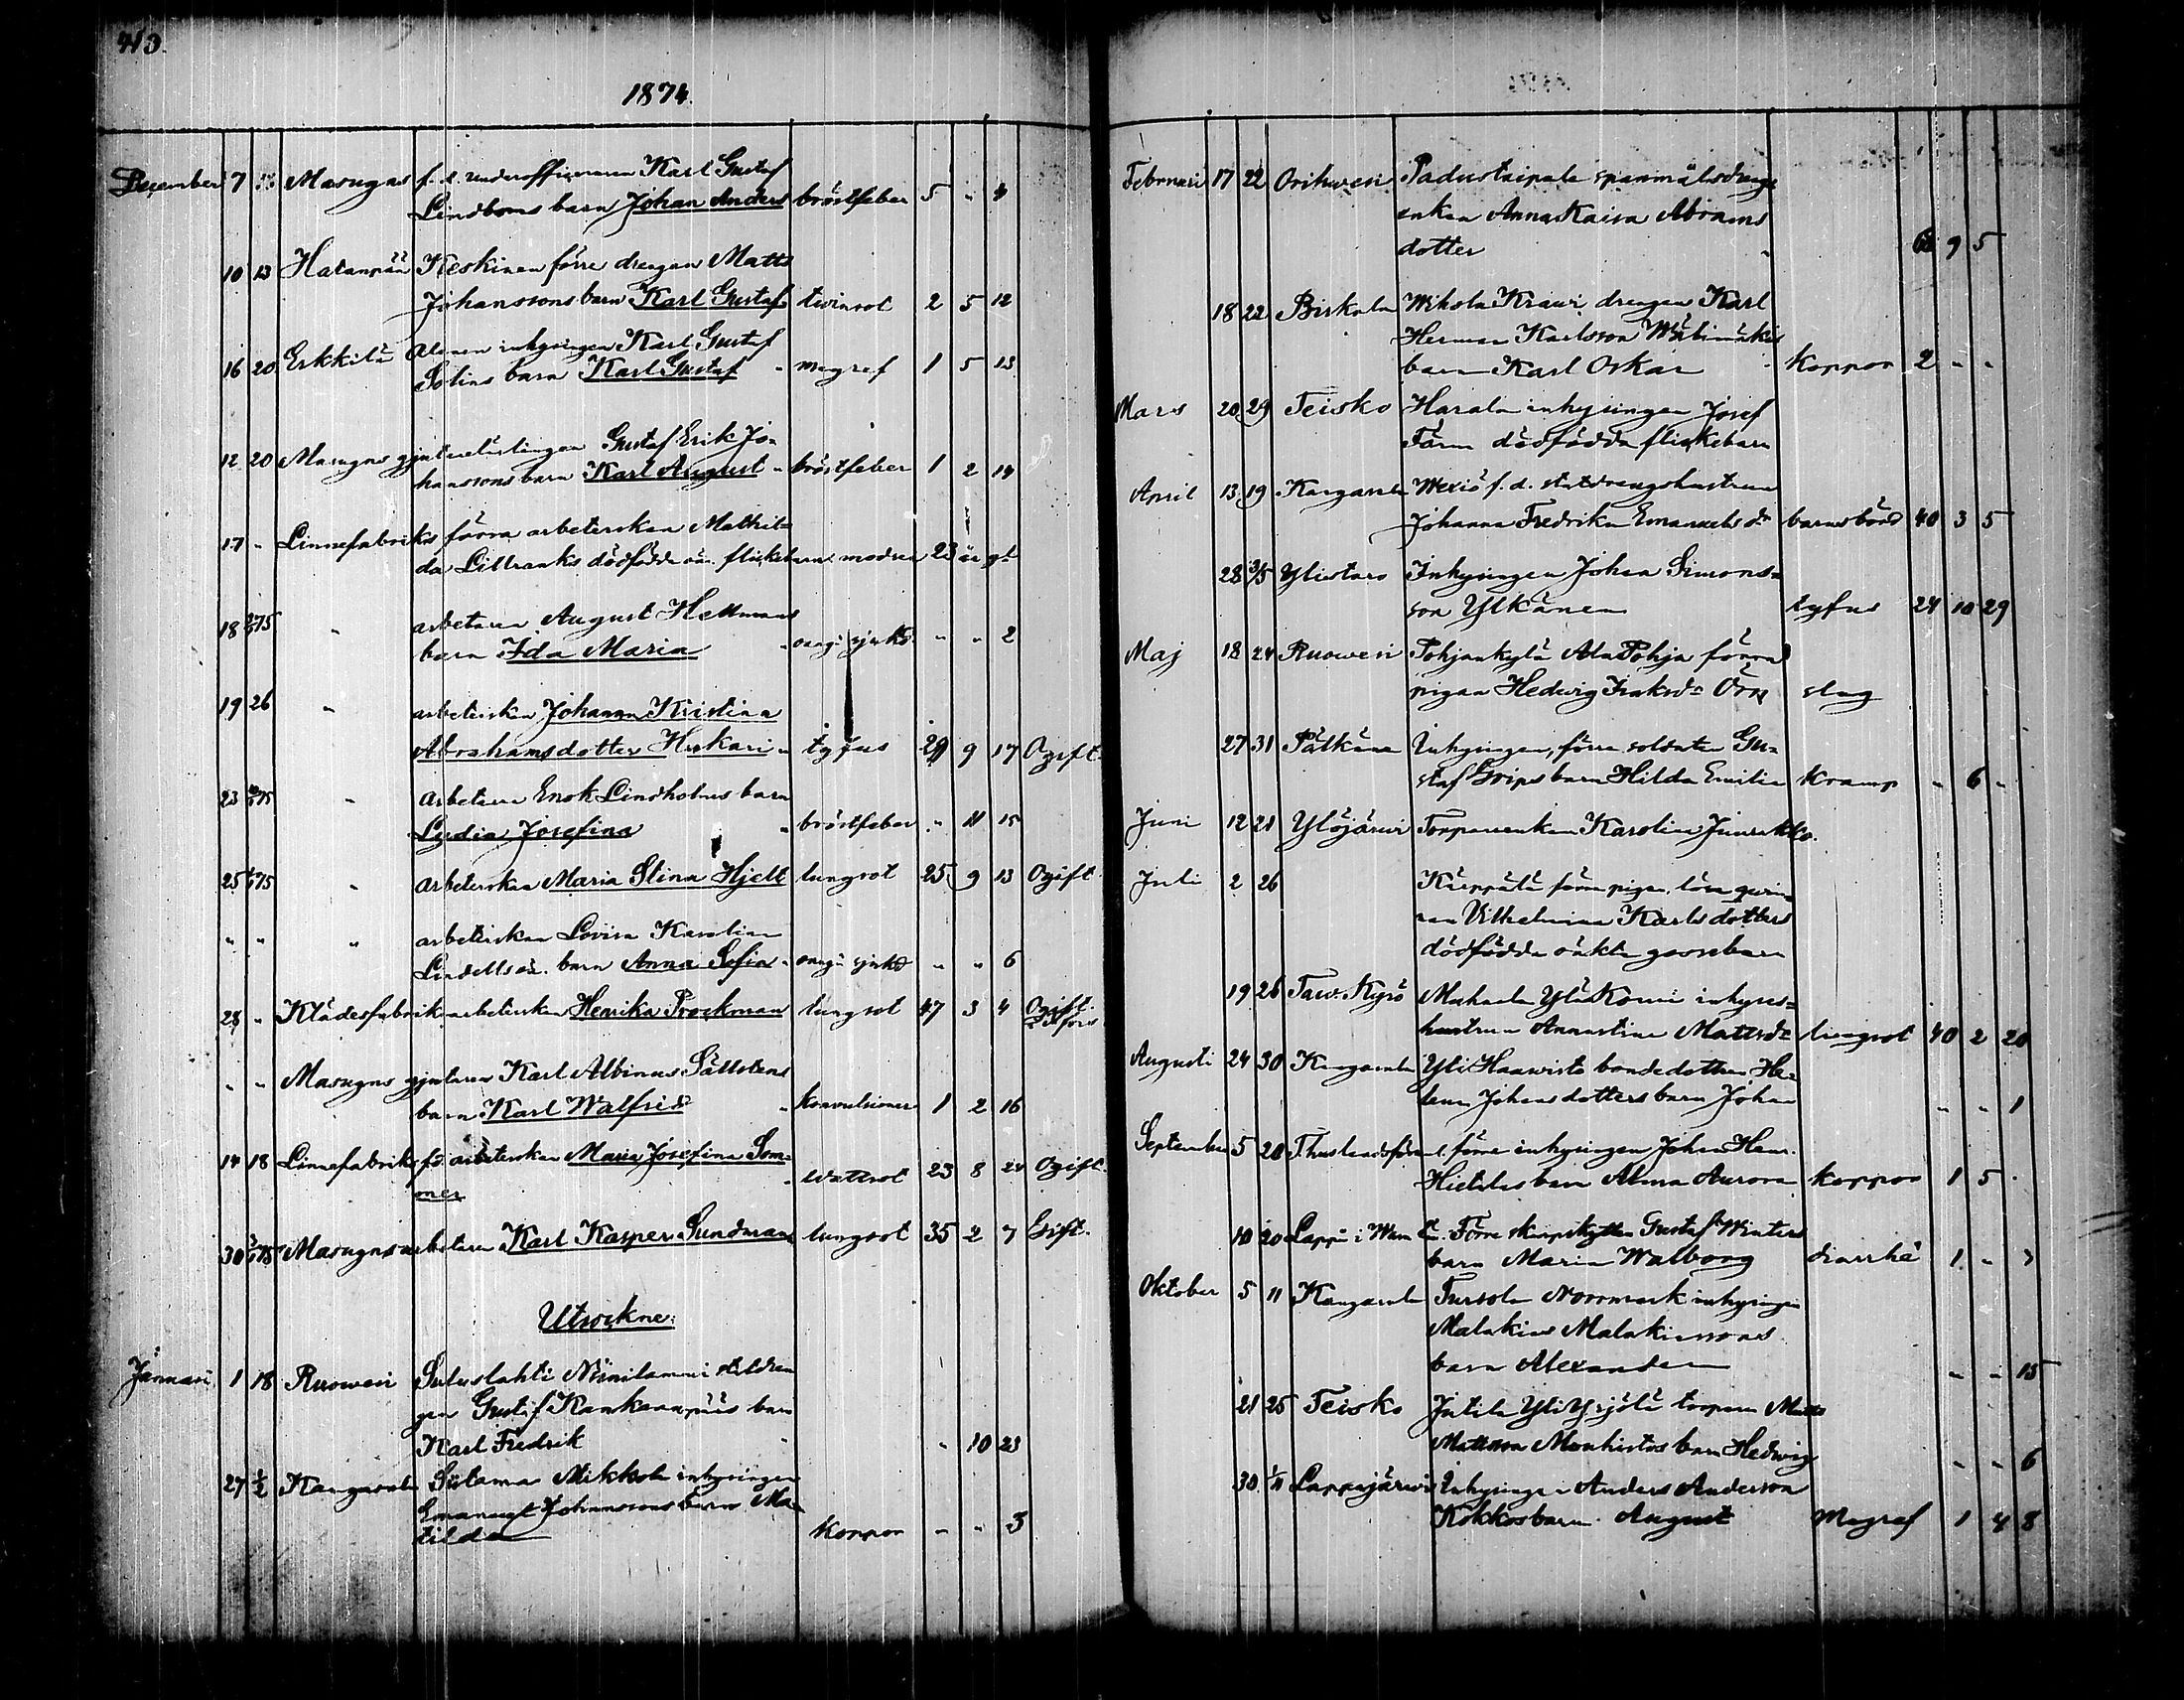 413.
1874.
December 7 13 Masugns f. d. underofficeraren Karl Gustaf
Lindboms barn Johan Anders bröstfeber 5 " 4
10 13 Hatanpää Keskinen förre drengen Matts
Johanssons barn Karl Gustaf tvinsot 2 5 12
16 20 Erkkilä Alanen inhysingen Karl Gustaf
Solins barn Karl Gustaf " magref 1 5 13
12 20 Masugns gjutarelärlingen Gustaf Erik Jo-
hanssons barn Karl August " bröstfeber 1 2 14
17 " Linnefabriks förra arbeterskan Mathil-
da Liltranks dödfödda oä. flickebarn. modren 23 år gl
18 75 " arbetaren August Hellmans
barn Ida Maria " sjukd. " " 2
19 26 " arbeterskan Johanna Kristina
Abrahamsdotter Huskari " tyfus 29 9 17 Ogift.
23 75 " arbetaren Enok Lindholms barn
Lydia Josefina " bröstfeber " 11 15
25 75 " arbeterskan Maria Stina Hjelt lungsot 25 9 13 Ogift.
" " " arbeterskan Lovisa Karolina
Lindells oä. barn Anna Sofia " sjukd " " 6
28 " Klädesfabrik arbeterskan Henrika Brockman lungsot 47 3 4 Ogift
" " Masugns gjutaren Karl Albinus Sättstens
barn Karl Walfrid " konvulsioner 1 2 16
14 18 Linnefabriks f.d. arbeterskan Maria Josefina Som-
mer " wattsot 23 8 24 Ogift.
30 75 Masugnsarbetaren Karl Kasper Sundman lungsot 35 2 7 Gift.
Utsockne:
Januari 1 18 Ruowesi Suluslahti Niinilammi statdren
gen Gustaf Kankaanpääs barn
Karl Fredrik " " 10 23
27 1/2 Kangasala Suтama Mikkola inhysingen
Emanuel Johanssons barn Ma-
tilda koppor " " 3
Februari 17 22 Orihwesi Padustaipale spanmålsdrengs
enkan Anna Kaisa Abrams
dotter " 62 9 5
18 22 Birkala Wihola Krawi drengen Karl
Herman Karlsson Wälimäkis
barn Karl Oskar " koppor 2 " "
Mars 20 29 Teisko Harala inhysingen Josef
Färm dödfödda flickebarn
April 13 19 Kangasala Wexiö f. d. statdrengshustrun
Johanna Fredrika Emanuels dr barnsbörd 40 3 5
28 3/5 Ylistaro Inhysingen Johan Simons-
son Ylkänen tyfus 24 10 29
Maj 18 24 Ruowesi Pohjankylä Ala Pohja förra
pigan Hedwig Isaksdr Örn slag
27 31 Pälkäne Inhysingen, förre soldaten Gu-
staf Grips barn Hilda Emilia Kramp " 6 "
Juni 12 21 Ylöjärwi Torparenkan Karolina Junrakko.
Juli 2 26 Käppälä förra pigan, lösa qvin-
nan Vilhelmina Karlsdotters
dödfödda oäkta gossebarn
19 26 Taw. Kyrö Mahnala Ylä Komi inhyses-
hustrun Annastina Mattsdr lungsot 40 2 20
Augusti 24 30 Kangasala Yli Haawisto bondedottren He-
lena Johansdotters barn Johan " " 1
September 5 20 Thuslandsförsaml. förre inhysingen Johan Hen.
Hietalas barn Alma Aurora koppor 1 5 .
10 20 Lappo i Wasa län. Förre skarpskytten Gustaf Winters
barn Maria Walborg diarrhé 1 " 7
Oktober 5 11 Kangasala Tursola Norrmark inhysingen
Malakias Malakiassons
barn Alexander " " 15
21 25 Teisko Jutila Yli Yrjölä torparen Matts
Mattsson Monkistos barn Hedwig " " 6
30 1/11 Lappajärwi Inhysingen Anders Anderson
Kokkos barn August Magref 1 4 8